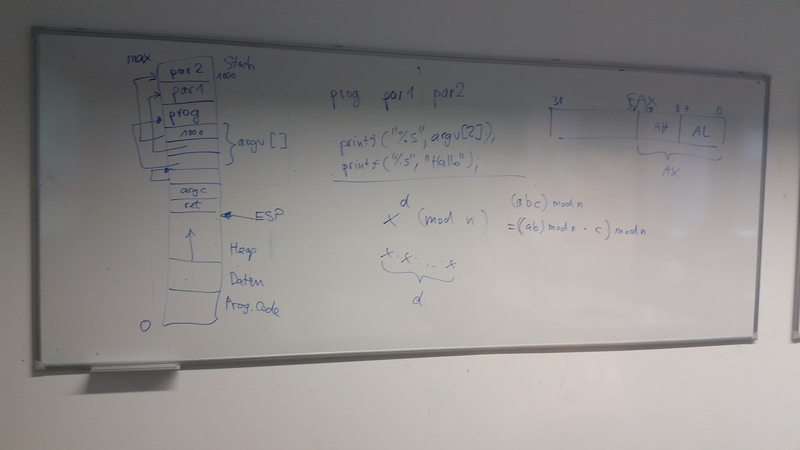 max
Stack
par2
1000
par1
prog
1000
argv[]
argc
ret
ESP
Heap
Daten
Prog. Code
0
prog par1 par2
printf("%s", argv[2]);
printf("%s", "Hallo");
x^d (mod n)
(abc) mod n
=((ab) mod n · c) mod n
x · x · ... · x
d
EAX
31
8 7 0
AH AL
AX